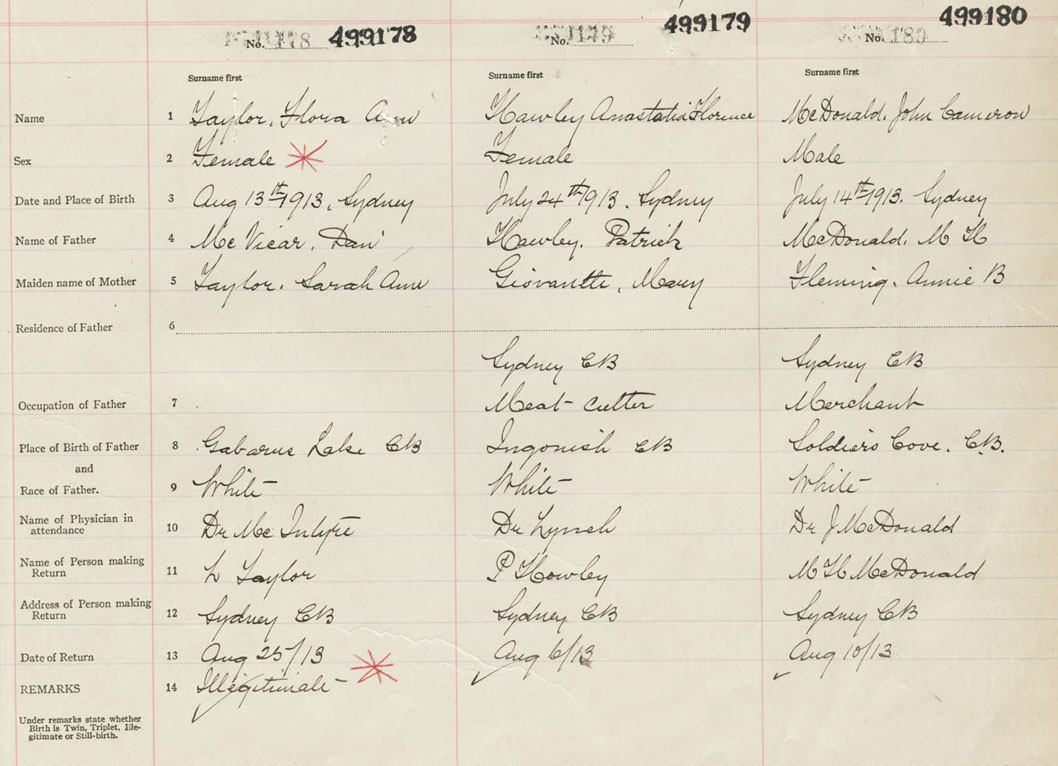 No. 499178 No. 499179 No. 180 499180
Surname first Surname first Surname first
Name 1 Taylor, Flora Ann Hawley Anastatia Florence McDonald. John Cameron
Sex 2 Female Female Male
Date and Place of Birth 3 Aug 13th 1913, Sydney July 24th 1913. Sydney July 14th 1913. Sydney
Name of Father 4 McVicar, Dan Hawley. Patrick McDonald. M H
Maiden name of Mother 5 Taylor. Sarah Ann Giovantti, Mary Fleming. Annie B
Residence of Father 6
Sydney CB Sydney CB
Occupation of Father 7 Meat cutter Merchant
Place of Birth of Father 8 Gabarus Lake CB Ingonish CB Soldiers Cove. C.B.
and
Race of Father. 9 White White White
Name of Physician in
attendance 10 Dr McIntyre Dr Lynch Dr J McDonald
Name of Person making
Return 11 L Taylor P Howley M H McDonald
Address of Person making
Return 12 Sydney CB Sydney CB Sydney CB
Date of Return 13 Aug 25/13 Aug 6/13 Aug 10/13
REMARKS 14 Illegitimate
Under remarks state whether
Birth is Twin, Triplet, Ille-
gitimate or Still-birth.